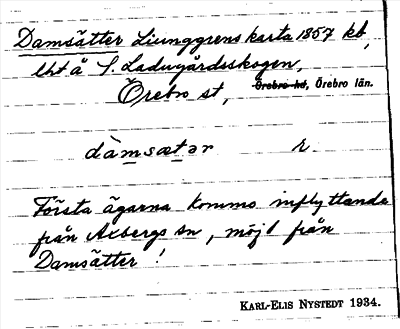 Damsätter Ljunggrens karta 1857 kb,
lht å S. Ladugårdsskogen,
Örebro st, Örebro hd, Örebro län.
dàmsætər r.
Första ägarna kommo inflyttande
från Axbergs sn, möjl från
Damsätter!
KARL-ELIS NYSTEDT 1934.